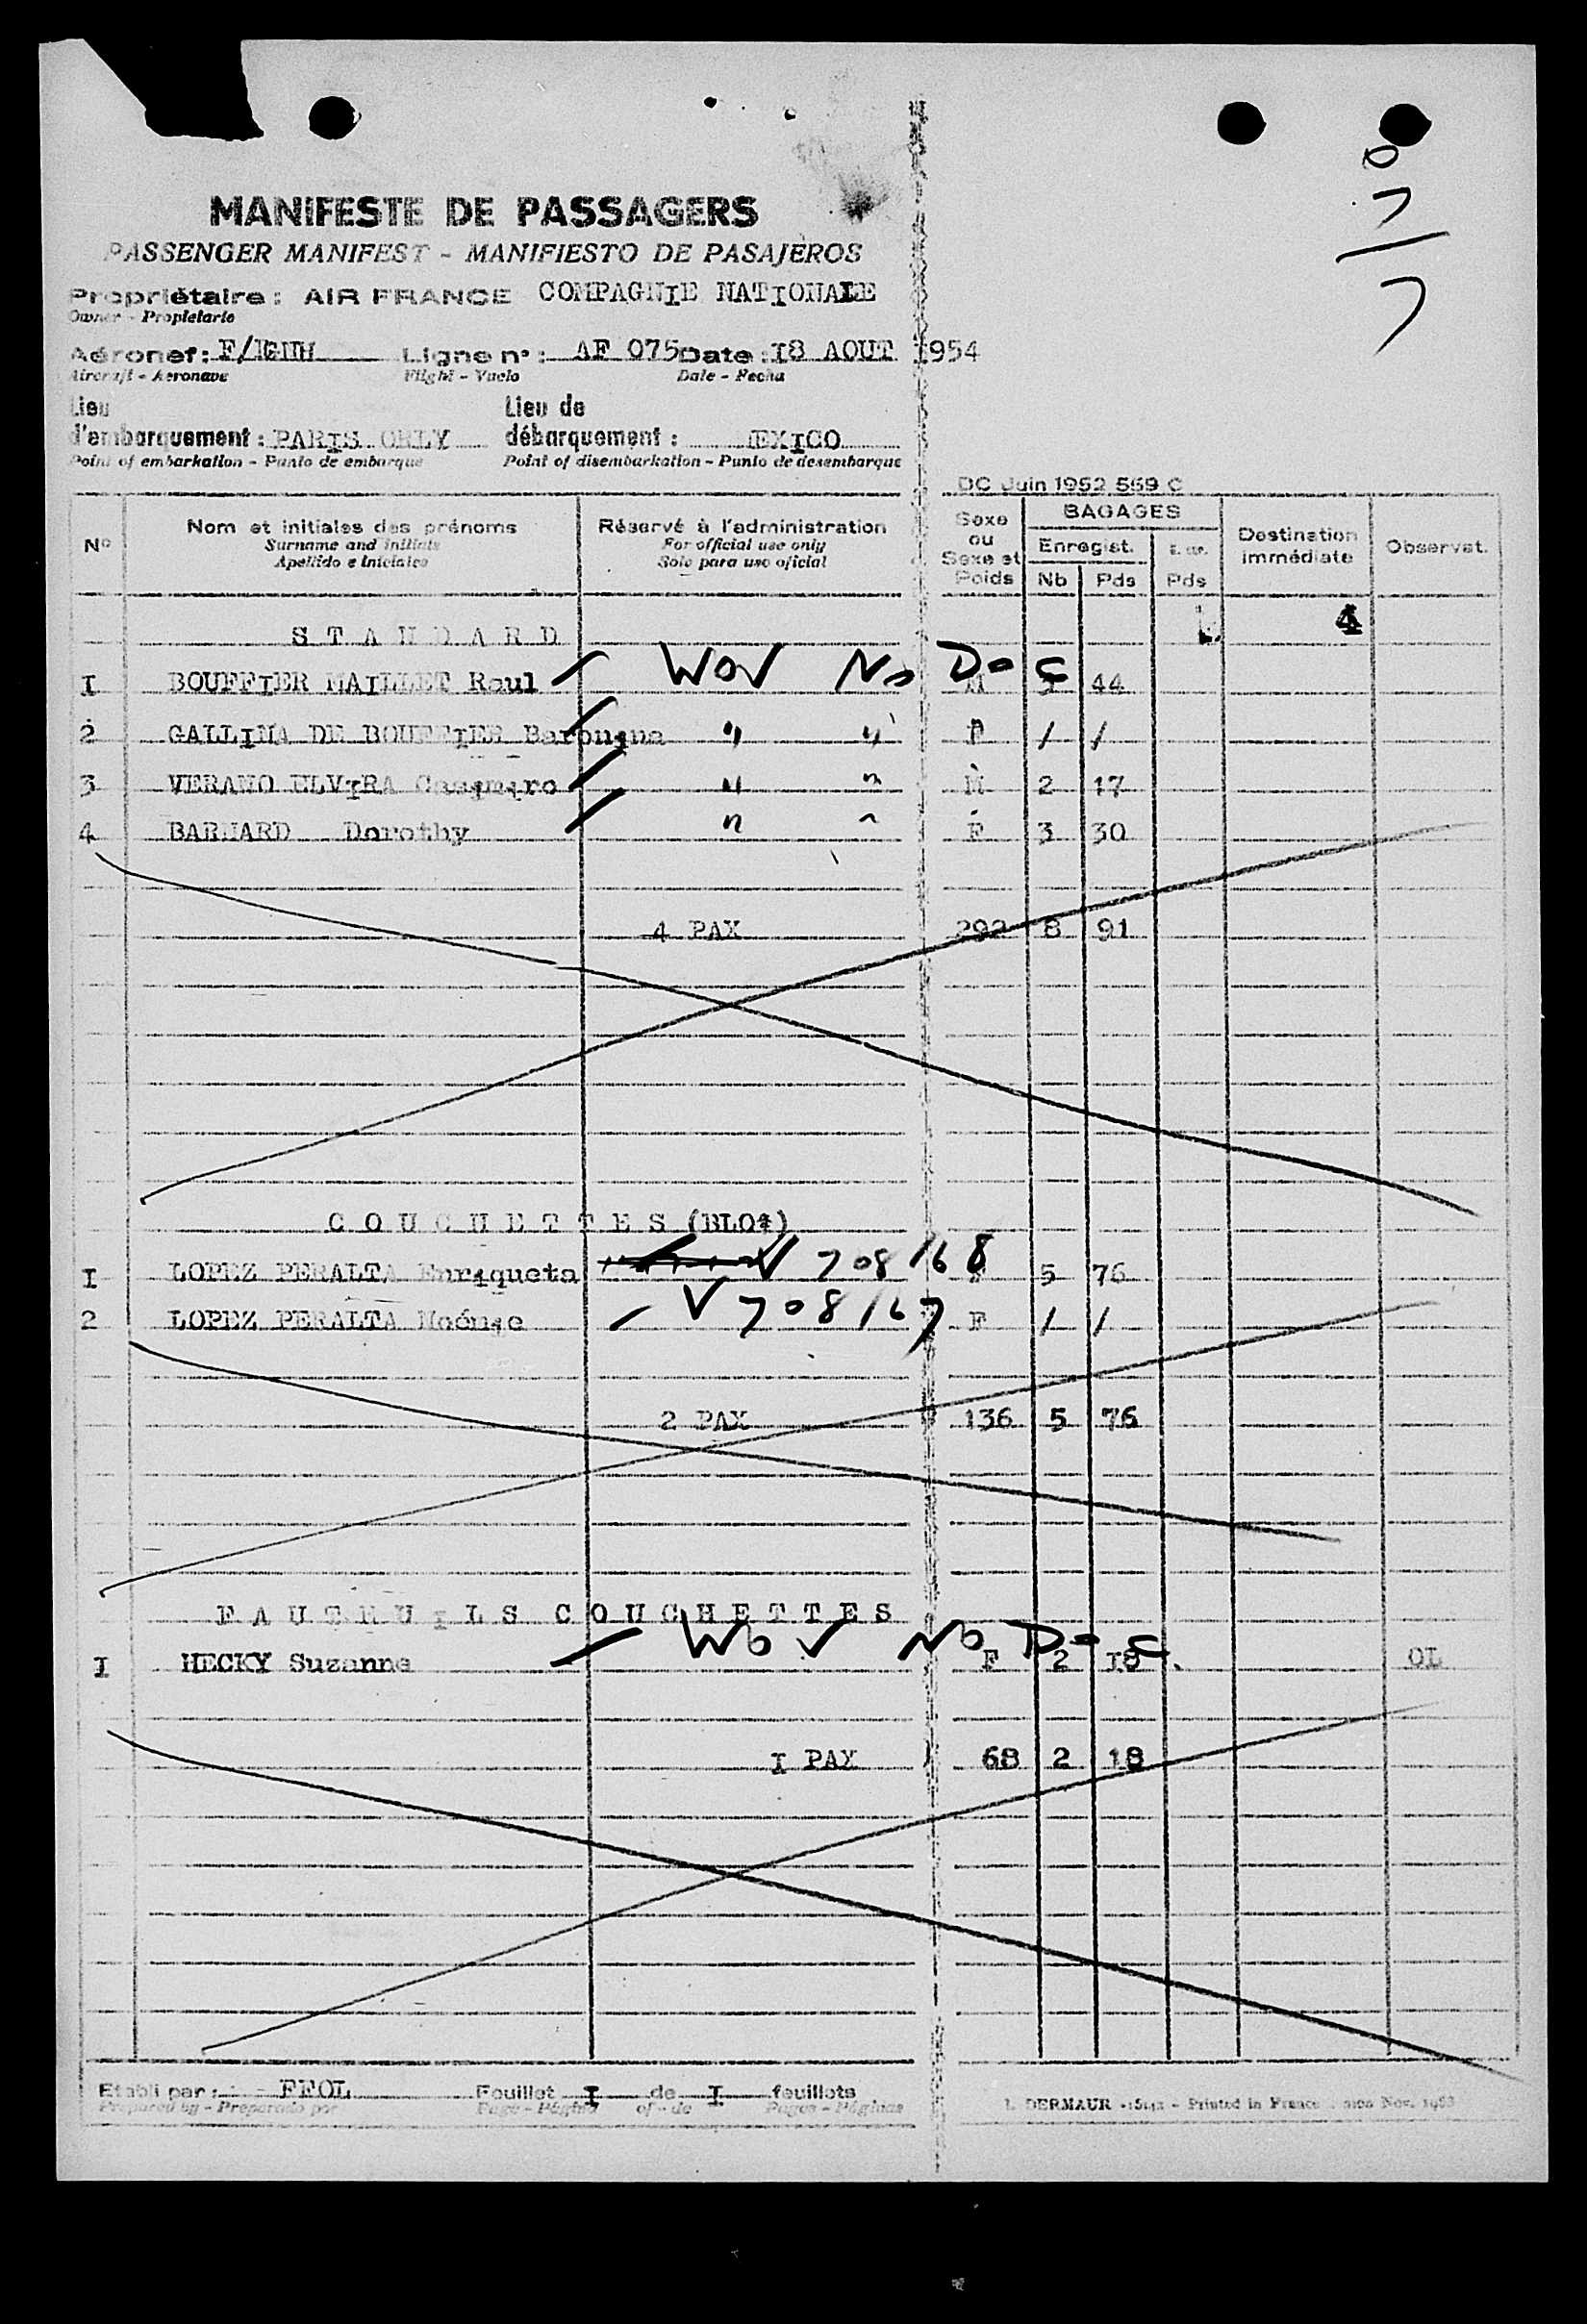 0
7
7
MANIFESTE DE PASSAGERS
PASSENGER MANIFEST - MANIFIESTO DE PASAJEROS
Propriétaire : AIR FRANCE COMPAGNIE NATIONALE
Owner - Propietario
Aéronef : F/BGNH Ligne n° : AF 075 Date : I8 AOUT 1954
Aircraft - Aeronave Flight - Vuelo Date - Fecha
Lieu Lieu de
d'embarquement : PARIS ORLY débarquement : MEXICO
Point of embarkation - Punto de embarque Point of disembarkation - Punto de desembarque
DC Juin 1952 569 C
N° Nom et initiales des prénoms Réservé à l'administration Sexe ou Sexe et Poids BAGAGES Destination immédiate Observat.
Surname and initials For official use only Enregist.
Apellido e iniciales Solo para uso oficial Nb Pds Pds
S T A N D A R D 4
I BOUFFIER MAILLET Raul WOV No Doc M 3 44
2 GALLINA DE BOUFFIER " " F / /
3 VERANO ELVIRA Casimiro " " M 2 17
4 BARNARD Dorothy " " F 3 30
4 PAX 292 8 91
C O U C H E T T E S (BLOC)
I LOPEZ PERALTA Enriqueta V 708168 F 5 76
2 LOPEZ PERALTA V 708167 F / /
2 PAX 136 5 76
F A U T E U I L S C O U C H E T T E S
I HECKY Suzanne WOV No Doc F 2 I8 OL
I PAX 68 2 18
Etabli par : FFOL Feuillet I de I feuillets
Prepared by - Preparado por Page - Página of - de Pages - Páginas
DERMAUR Printed in France Nov. 1953